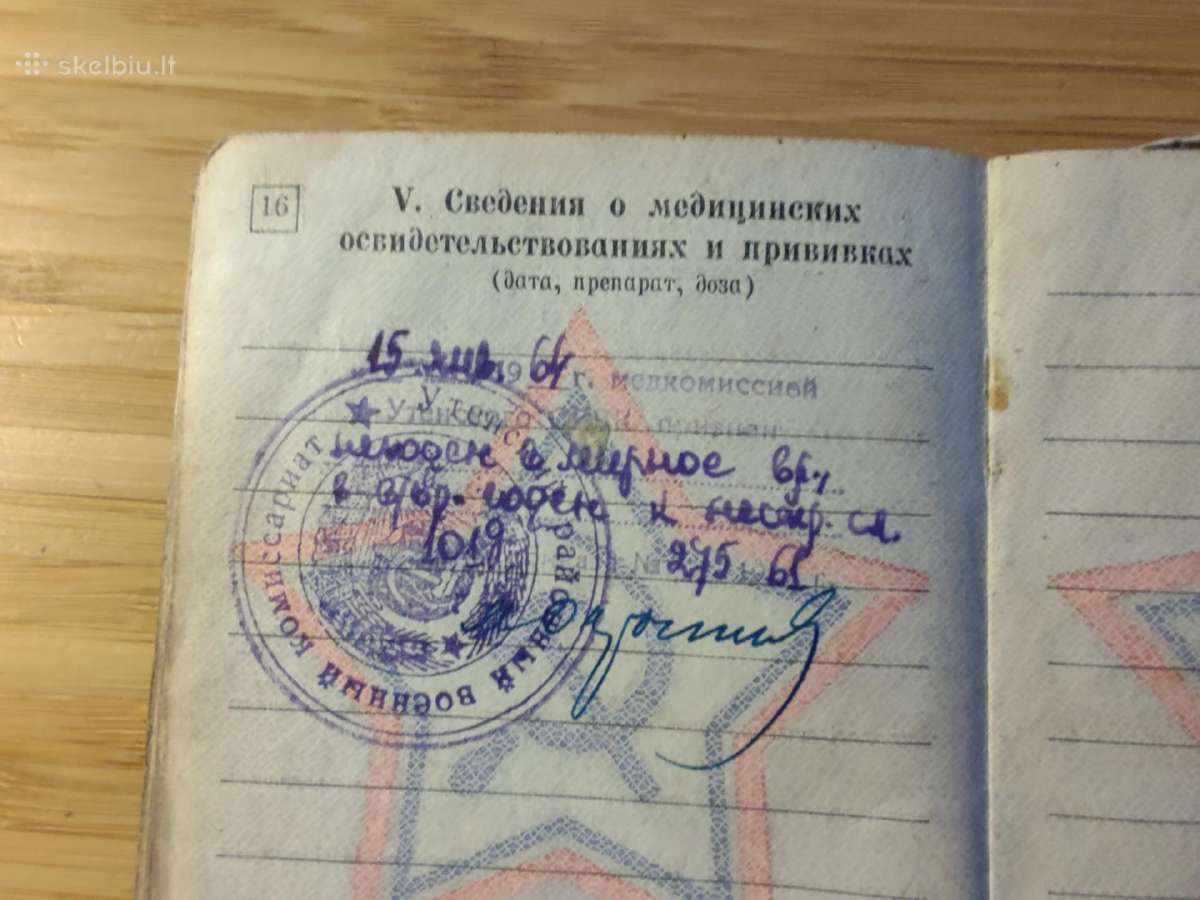 skelbiu.lt
16
V. Сведения о медицинских
освидетельствованиях и прививках
(дата, препарат, доза)
15 янв. 1964 г. медкомиссией
Утенского признан
негоден в мирное вр.,
в в/вр. годен к нестр. сл.
1019 275 61
Утенс районный военный комиссариат